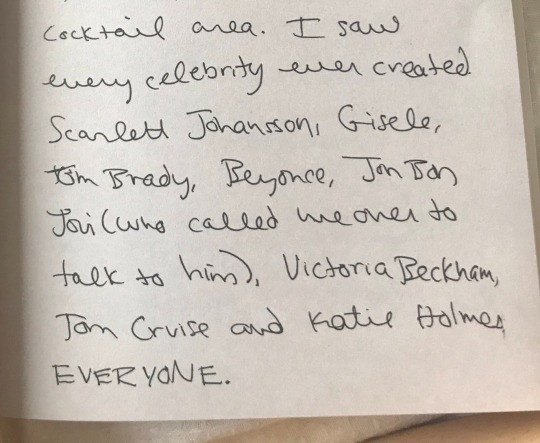 cocktail area. I saw
every celebrity ever created
Scarlett Johansson, Gisele,
Tom Brady, Beyonce, Jon Bon
Jovi (who called me over to
talk to him), Victoria Beckham,
Tom Cruise and Katie Holmes,
EVERYONE.